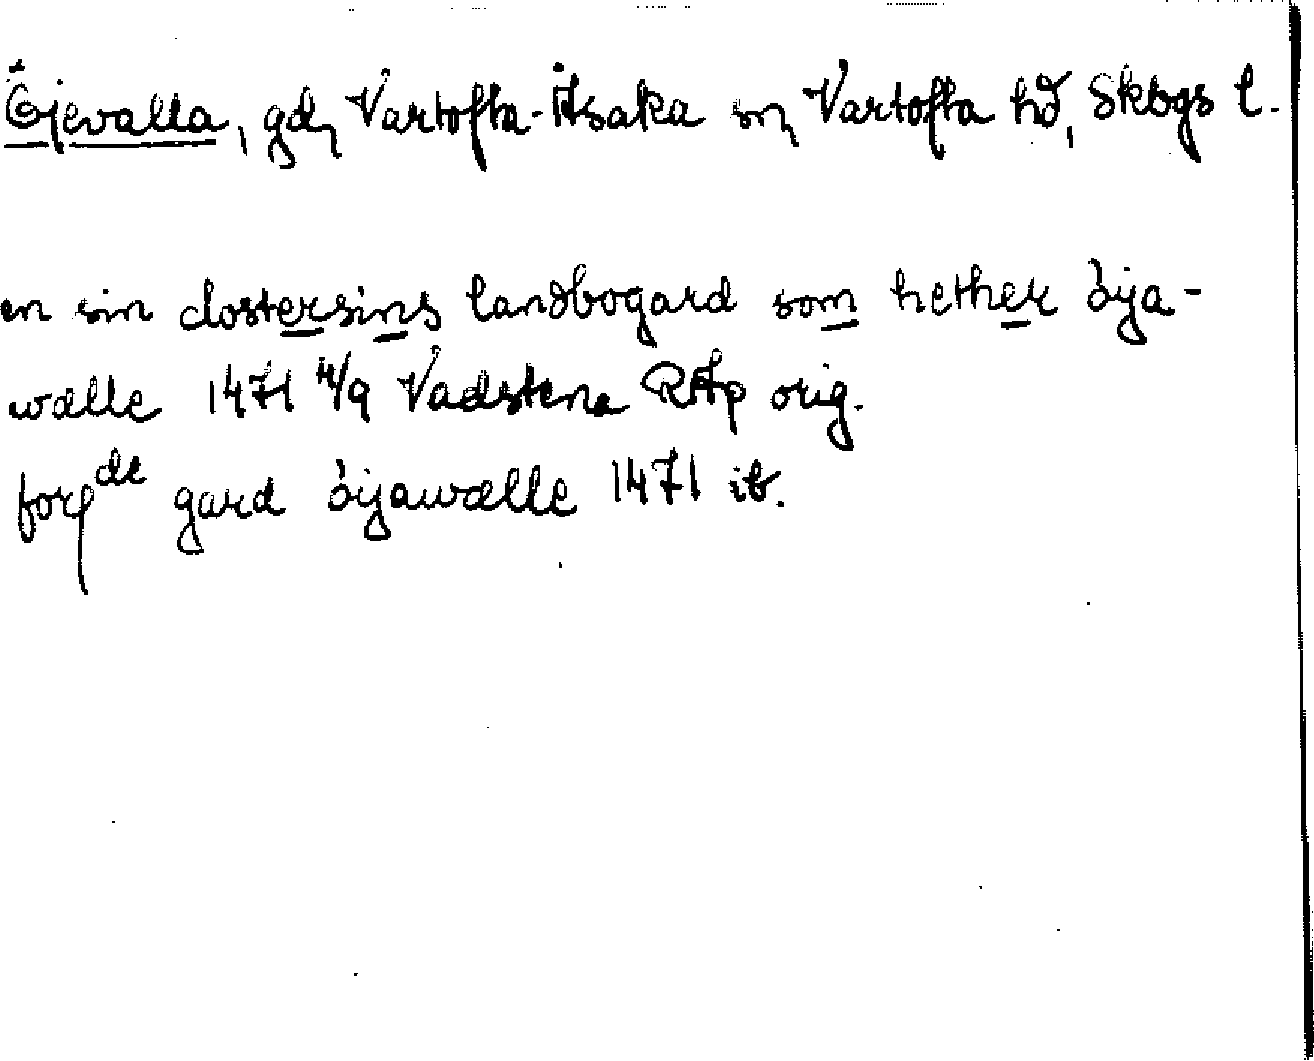 Öjevalla, gd, Vartofta-Åsaka sn, Vartofta hd, Skbgs l.
en sin clostersins landbogard som hether öya-
wælle 1471 14/9 Vadstena RAp orig.
forde gard öyawælle 1471 ib.